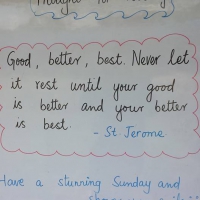 Thought for
Good, better, best. Never let
it rest until your good
is better and your better
is best.
- St Jerome
Have a stunning Sunday and